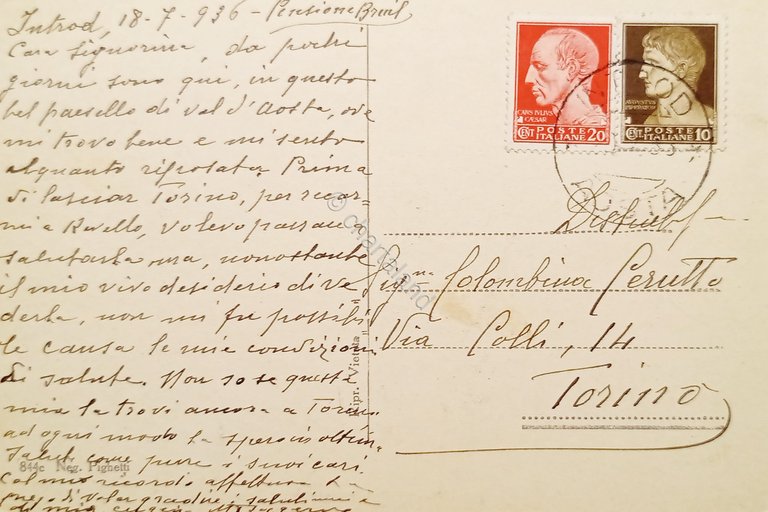 Introd, 18-7-936 - Pensione Breuil
Cara Signorina, da pochi
giorni sono qui, in questo
bel paesello di val d'Aosta, ove
mi trovo bene e mi sento
alquanto riposata. Prima
di lasciar Torino, per recar-
mi a Ravello, volevo passare a
salutarla, ma, nonostante
il mio vivo desiderio di ve
derla, non mi fu possibi
le causa le mie condizioni
di salute. Non so se questa
mia la trovi ancora a Torino
ad ogni modo la spero in ottim
salute come pure i suoi cari.
Col mio ricordo affettuoso La
prego di voler gradire i saluti miei e
di mia
844c Neg. Pighetti
Ripr. Vietata
CAIUS IULIUS
CAESAR
CENT. POSTE 20
ITALIANE
AUGUSTUS
IMPERATOR
CENT. POSTE 10
ITALIANE
AOSTA
Sig.na Colombina Cerutti
Via Colli, 14
Torino
© chartaland